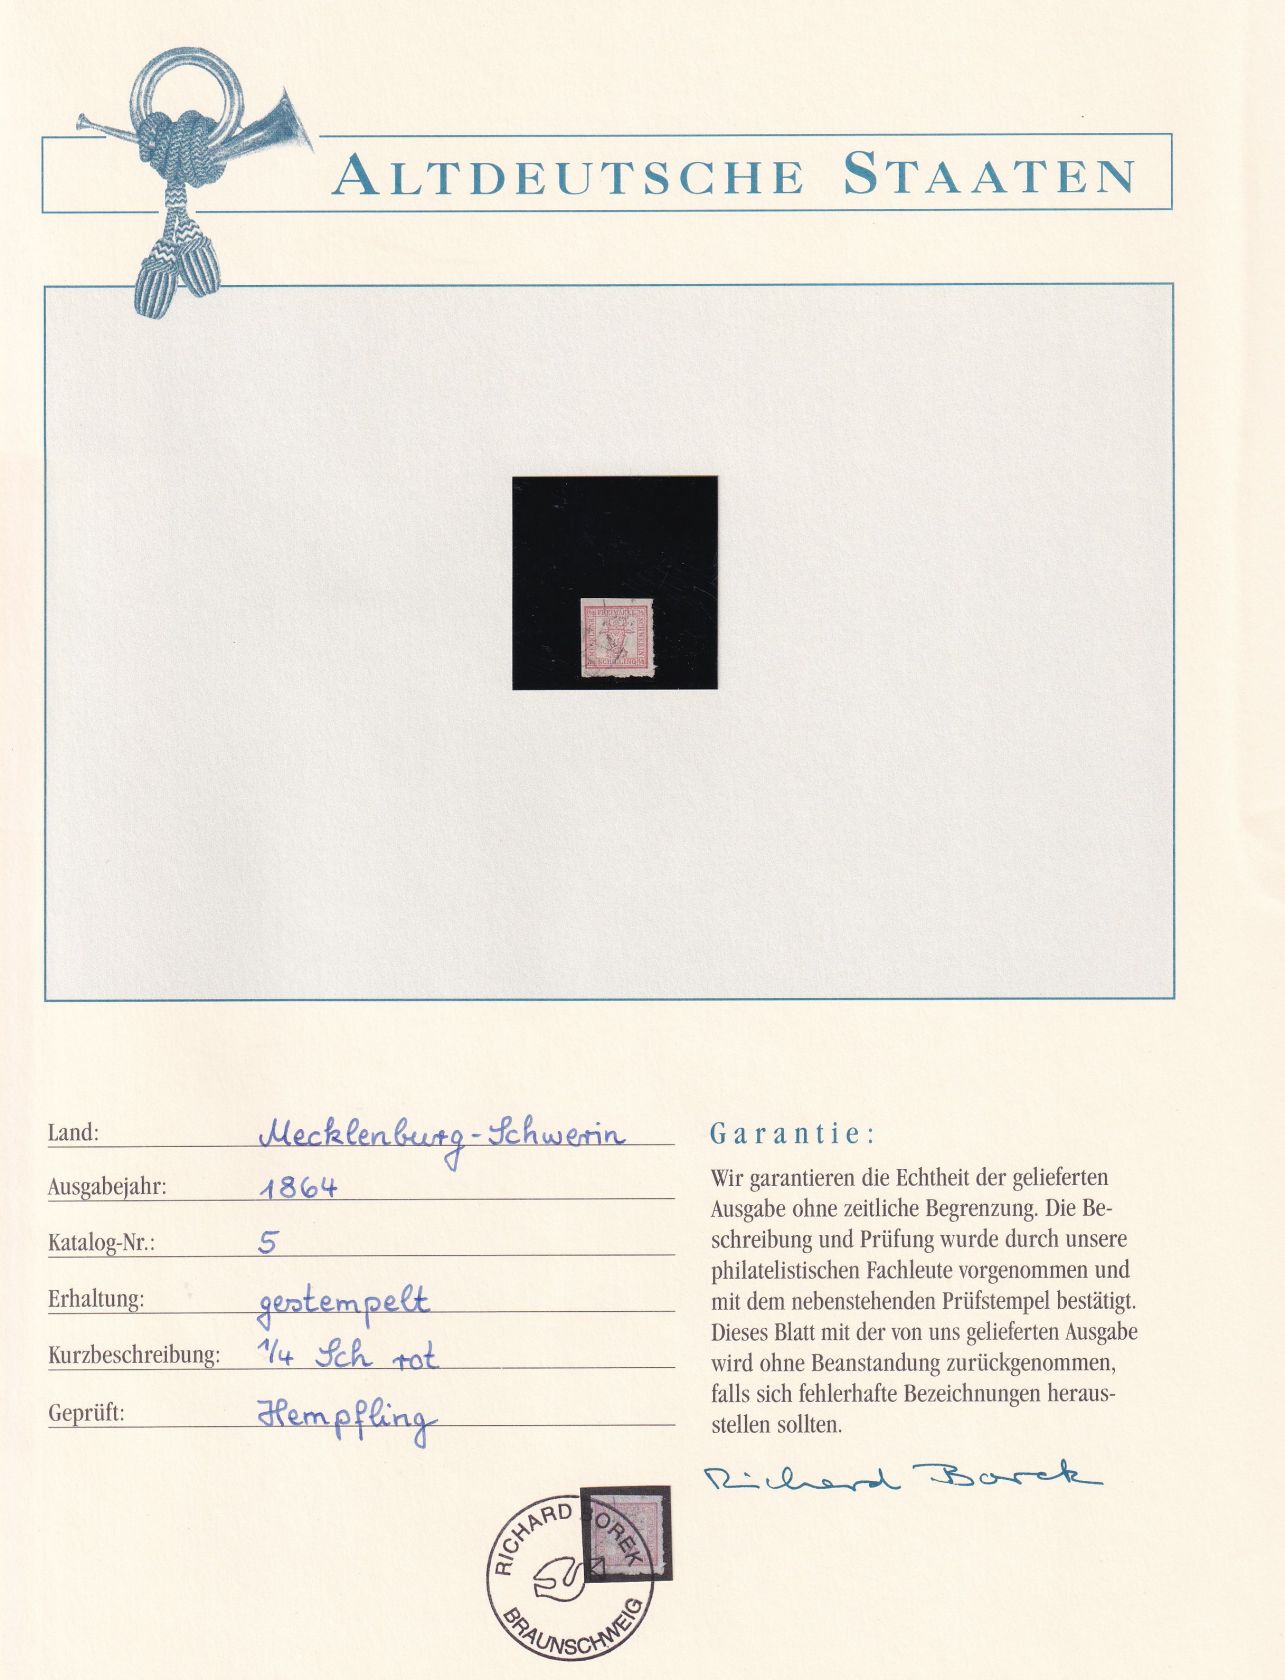 ALTDEUTSCHE STAATEN
FREIMARKE
SCHWERIN
Land: Mecklenburg-Schwerin
Ausgabejahr: 1864
Katalog-Nr.: 5
Erhaltung: gestempelt
Kurzbeschreibung: 1/4 Sch rot
Geprüft: Hempfling
Garantie:
Wir garantieren die Echtheit der gelieferten
Ausgabe ohne zeitliche Begrenzung. Die Be-
schreibung und Prüfung wurde durch unsere
philatelistischen Fachleute vorgenommen und
mit dem nebenstehenden Prüfstempel bestätigt.
Dieses Blatt mit der von uns gelieferten Ausgabe
wird ohne Beanstandung zurückgenommen,
falls sich fehlerhafte Bezeichnungen heraus-
stellen sollten.
Richard Borek
RICHARD BOREK
BRAUNSCHWEIG